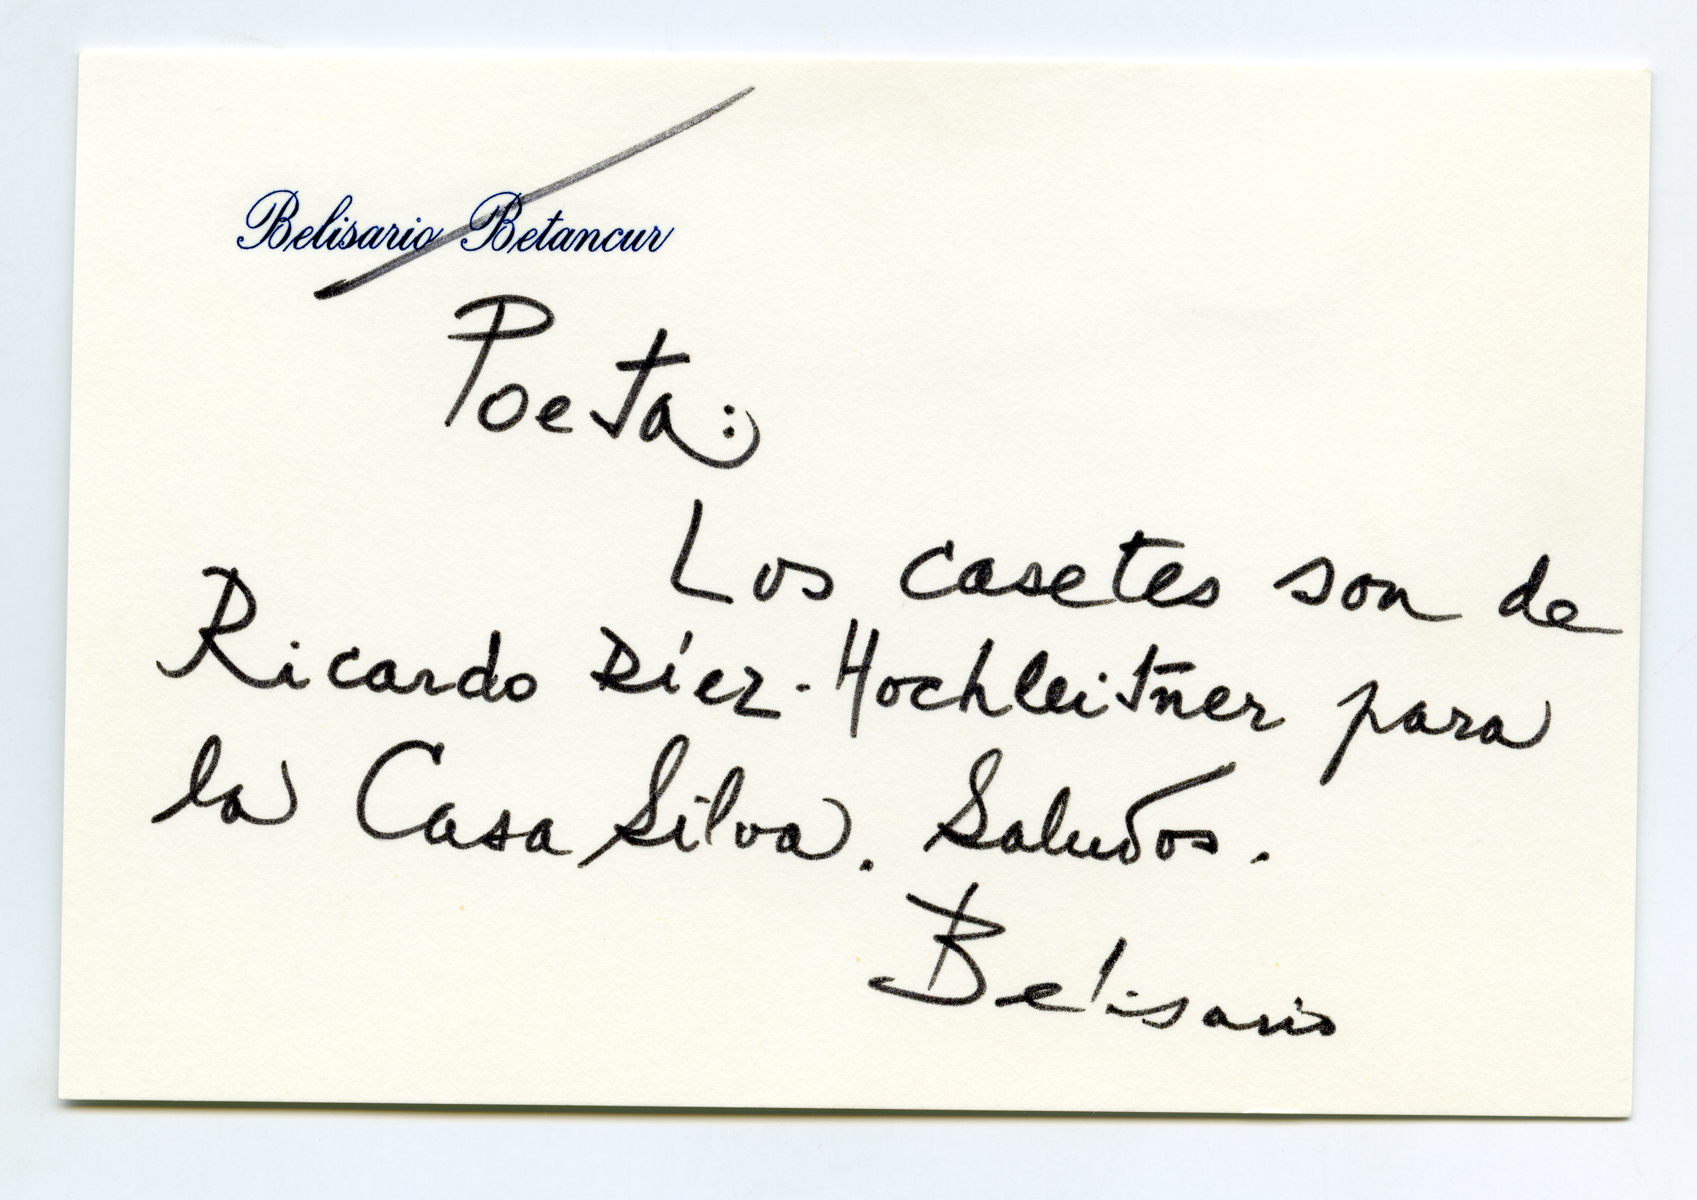 Belisario Betancur
Poeta:
Los casetes son de
Ricardo Díez-Hochleitner para
la Casa Silva. Saludos.
Belisario